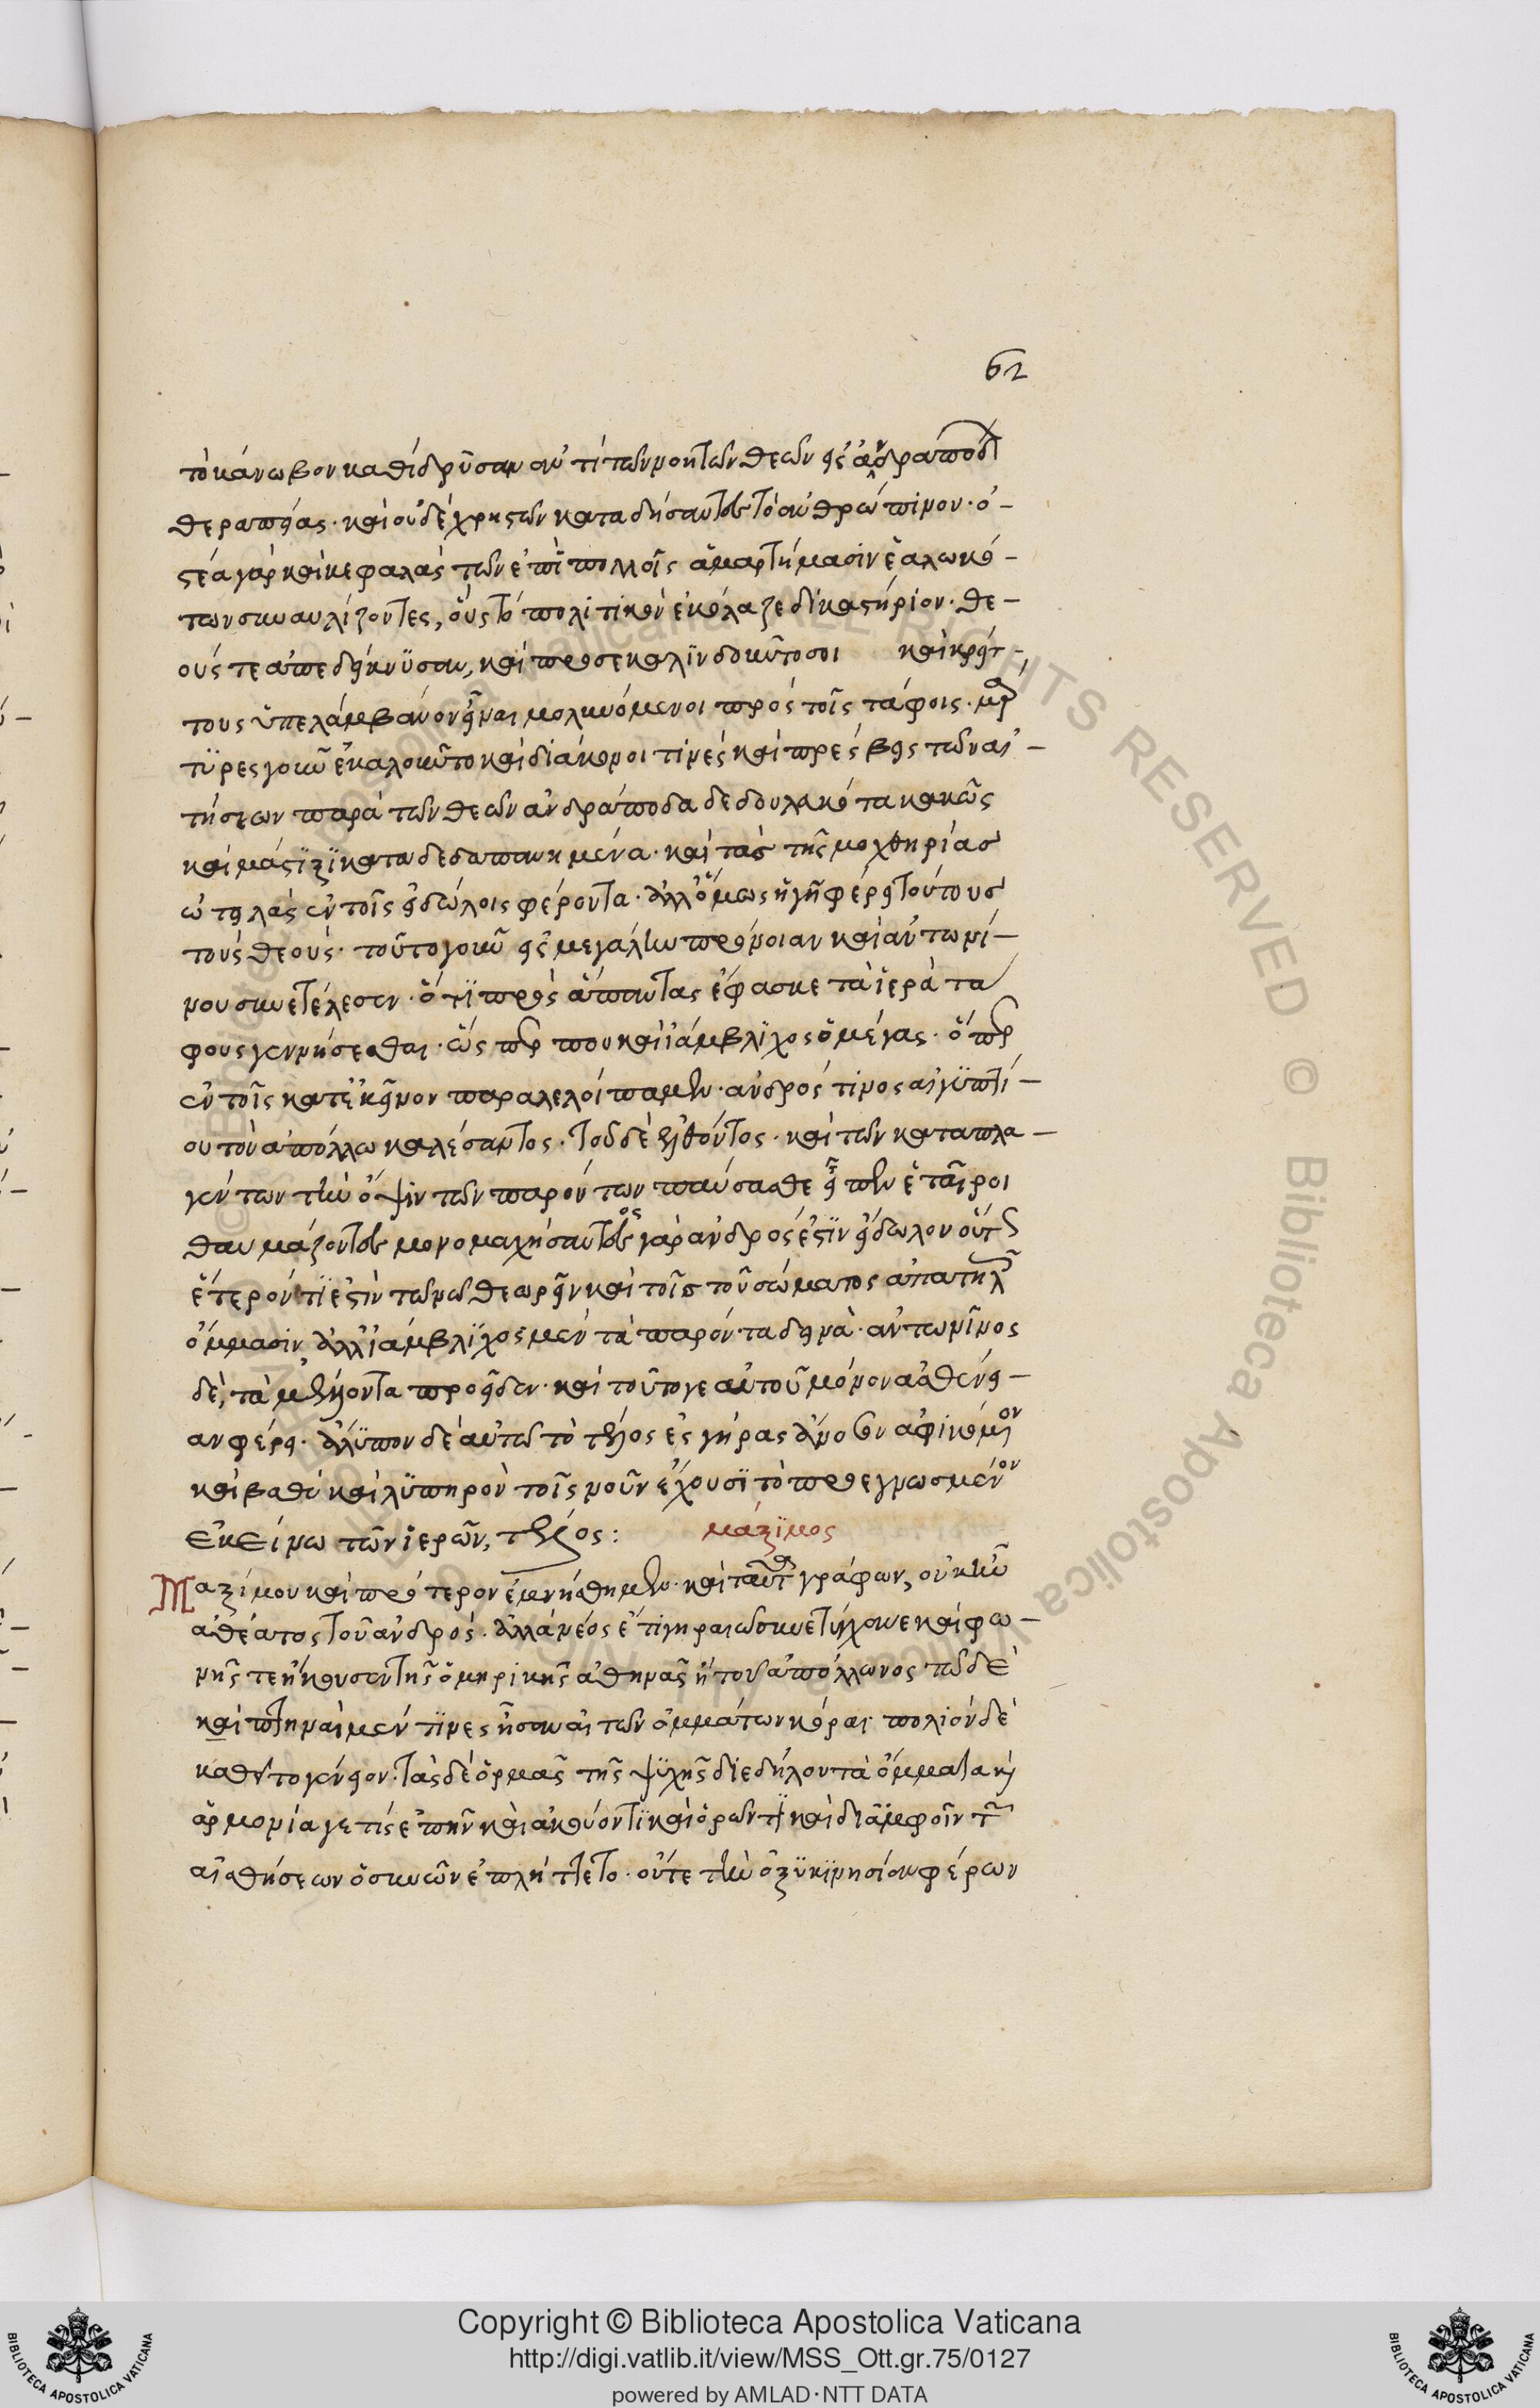 62
τὸ κάνωβον καθίδρυσαν ἀντὶ τῶν νοητῶν θεῶν εἰς ἀνδραπόδ
θεραπείας· καὶ οὐδὲ χρηστῶν καταδήσαντες τὸ ἀνθρώπινον· ὀ-
στέα γὰρ καὶ κεφαλὰς τῶν ἐπὶ πολλοῖς ἁμαρτήμασιν ἑαλωκό-
των συναυλίζοντες, οὓς τὸ πολιτικὸν ἐκόλαζε δικαστήριον· θε-
ούς τε ἀπεδείκνυσαν, καὶ καὶ κρείτ-
τους ὑπελάμβανον εἶναι μολυνόμενοι πρὸς τοῖς τάφοις· μάρ
τυρες γοῦν ἐκαλοῦντο καὶ διάκονοι τινὲς καὶ πρέσβεις τῶν αἰ-
τήσεων παρὰ τῶν θεῶν ἀνδράποδα δεδουλευκότα κακῶς
καὶ μάστιξι καταδεδαπανημένα· καὶ τὰς τῆς μοχθηρίας
ὠτειλὰς ἐν τοῖς εἰδώλοις φέροντα· ἀλλ' ὅμως ἡ γῆ φέρει τούτους
τοὺς θεούς· τοῦτο γοῦν εἰς μεγάλην πρόνοιαν καὶ ἀντωνί-
νου συνετέλεσεν· ὅτι πρὸς ἅπαντας ἔφασκε τὰ ἱερὰ τα
φους γενήσεσθαι· ὥς περ που καὶ ἰάμβλιχος ὁ μέγας· ὅπερ
ἐν τοῖς κατ' ἐκεῖνον παραλελοίπαμεν· ἀνδρός τινος αἰγυπτί-
ου τὸν ἀπόλλω καλέσαντος· τοῦ δὲ ἐλθόντος· καὶ τῶν καταπλα-
γέντων τὴν ὄψιν τῶν παρόντων παύσασθε εἶπεν ἑταῖροι
θαυμάζοντες μονομαχήσαντος γὰρ ἀνδρός ἐστιν εἴδωλον οὕτς
ἕτερόν τι ἐστὶν τῷ νῷ θεωρεῖν καὶ τοῖς τοῦ σώματος ἀπατηλ
ὄμμασιν· ἀλλ' ἰάμβλιχος μὲν τὰ παρόντα δεινὰ· ἀντωνῖνος
δὲ, τὰ μέλλοντα προεῖδεν· καὶ τοῦτο γε αὐτοῦ μόνον ἀσθένει-
αν φέρει· ἄλυπον δὲ αὐτῷ τὸ τέλος ἐς γήρας ἄνοσον ἀφικόμενον
καὶ βαθὺ καὶ λυπηρὸν τοῖς νοῦν ἔχουσι τὸ προεγνωσμένον
ἐκείνω τῶν ἱερῶν, τέλος: μάξιμος
Μαξίμου καὶ πρότερον ἐμνήσθημεν· καὶ ταῦτα γράφων, οὐκ ἦν
ἀθέατος τοῦ ἀνδρός· ἀλλὰ νέος ἔτι γηραιῷ συνετύγχανε καὶ φω-
νῆς τε ἤκουσεν τῆς ὁμηρικῆς ἀθηνᾶς ἢ τοῦ ἀπόλλωνος τῷ δὲ
καὶ πτηναὶ μέν τινες ἦσαν αἱ τῶν ὀμμάτων κόραι πολιὸν δὲ
καθεῖτο γένειον· τὰς δὲ ὁρμὰς τῆς ψυχῆς διεδήλου τὰ ὄμματα καὶ
ἁρμονία γε τὶς ἐπῆν καὶ ἀκούοντι καὶ ὁρῶντι καὶ δι' ἀμφοῖν τῶν
αἰσθήσεων ὁ συνὼν ἐπλήττετο· οὔτε τὴν ὀξυκινησίαν φέρων
Copyright © Biblioteca Apostolica Vaticana
http://digi.vatlib.it/view/MSS_Ott.gr.75/0127
powered by AMLAD·NTT DATA